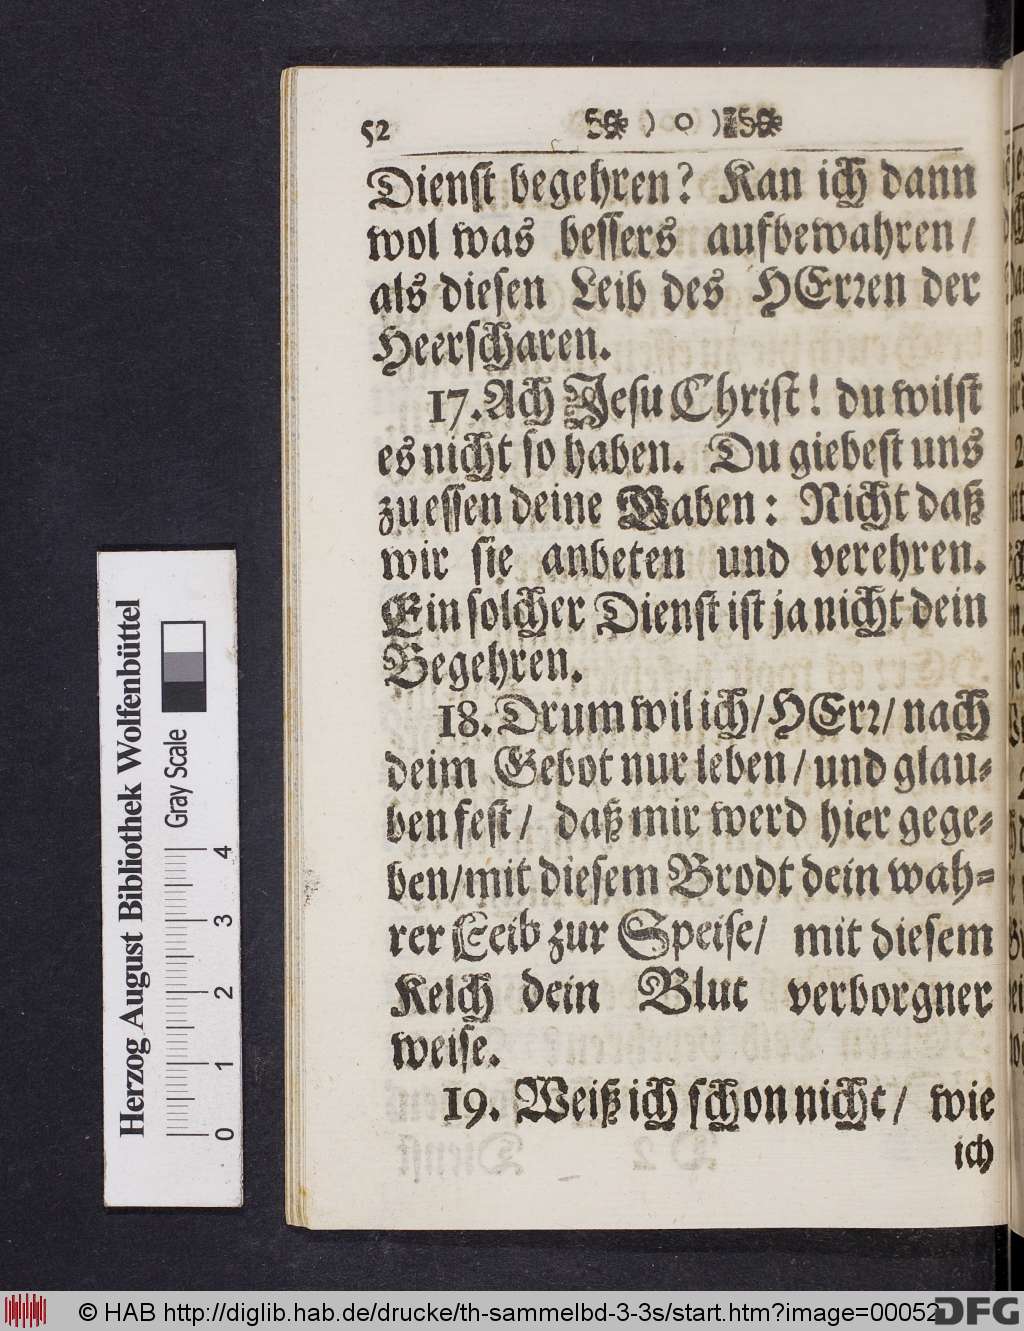 52 ) o (
Dienst begehren? Kan ich dann
wol was bessers aufbewahren/
als diesen Leib des HErꝛen der
Heerscharen.
17. Ach Jesu Christ! du wilst
es nicht so haben. Du giebest uns
zu essen deine Gaben: Nicht daß
wir sie anbeten und verehren.
Ein solcher Dienst ist ja nicht dein
Begehren.
18. Drum wil ich/ HErꝛ/ nach
deim Gebot nur leben/ und glau-
ben fest/ daß mir werd hier gege-
ben/ mit diesem Brodt dein wah-
rer Leib zur Speise/ mit diesem
Kelch dein Blut verborgner
weise.
19. Weiß ich schon nicht/ wie
ich
Herzog August Bibliothek Wolfenbüttel
Gray Scale
0 1 2 3 4
© HAB http://diglib.hab.de/drucke/th-sammelbd-3-3s/start.htm?image=00052
DFG